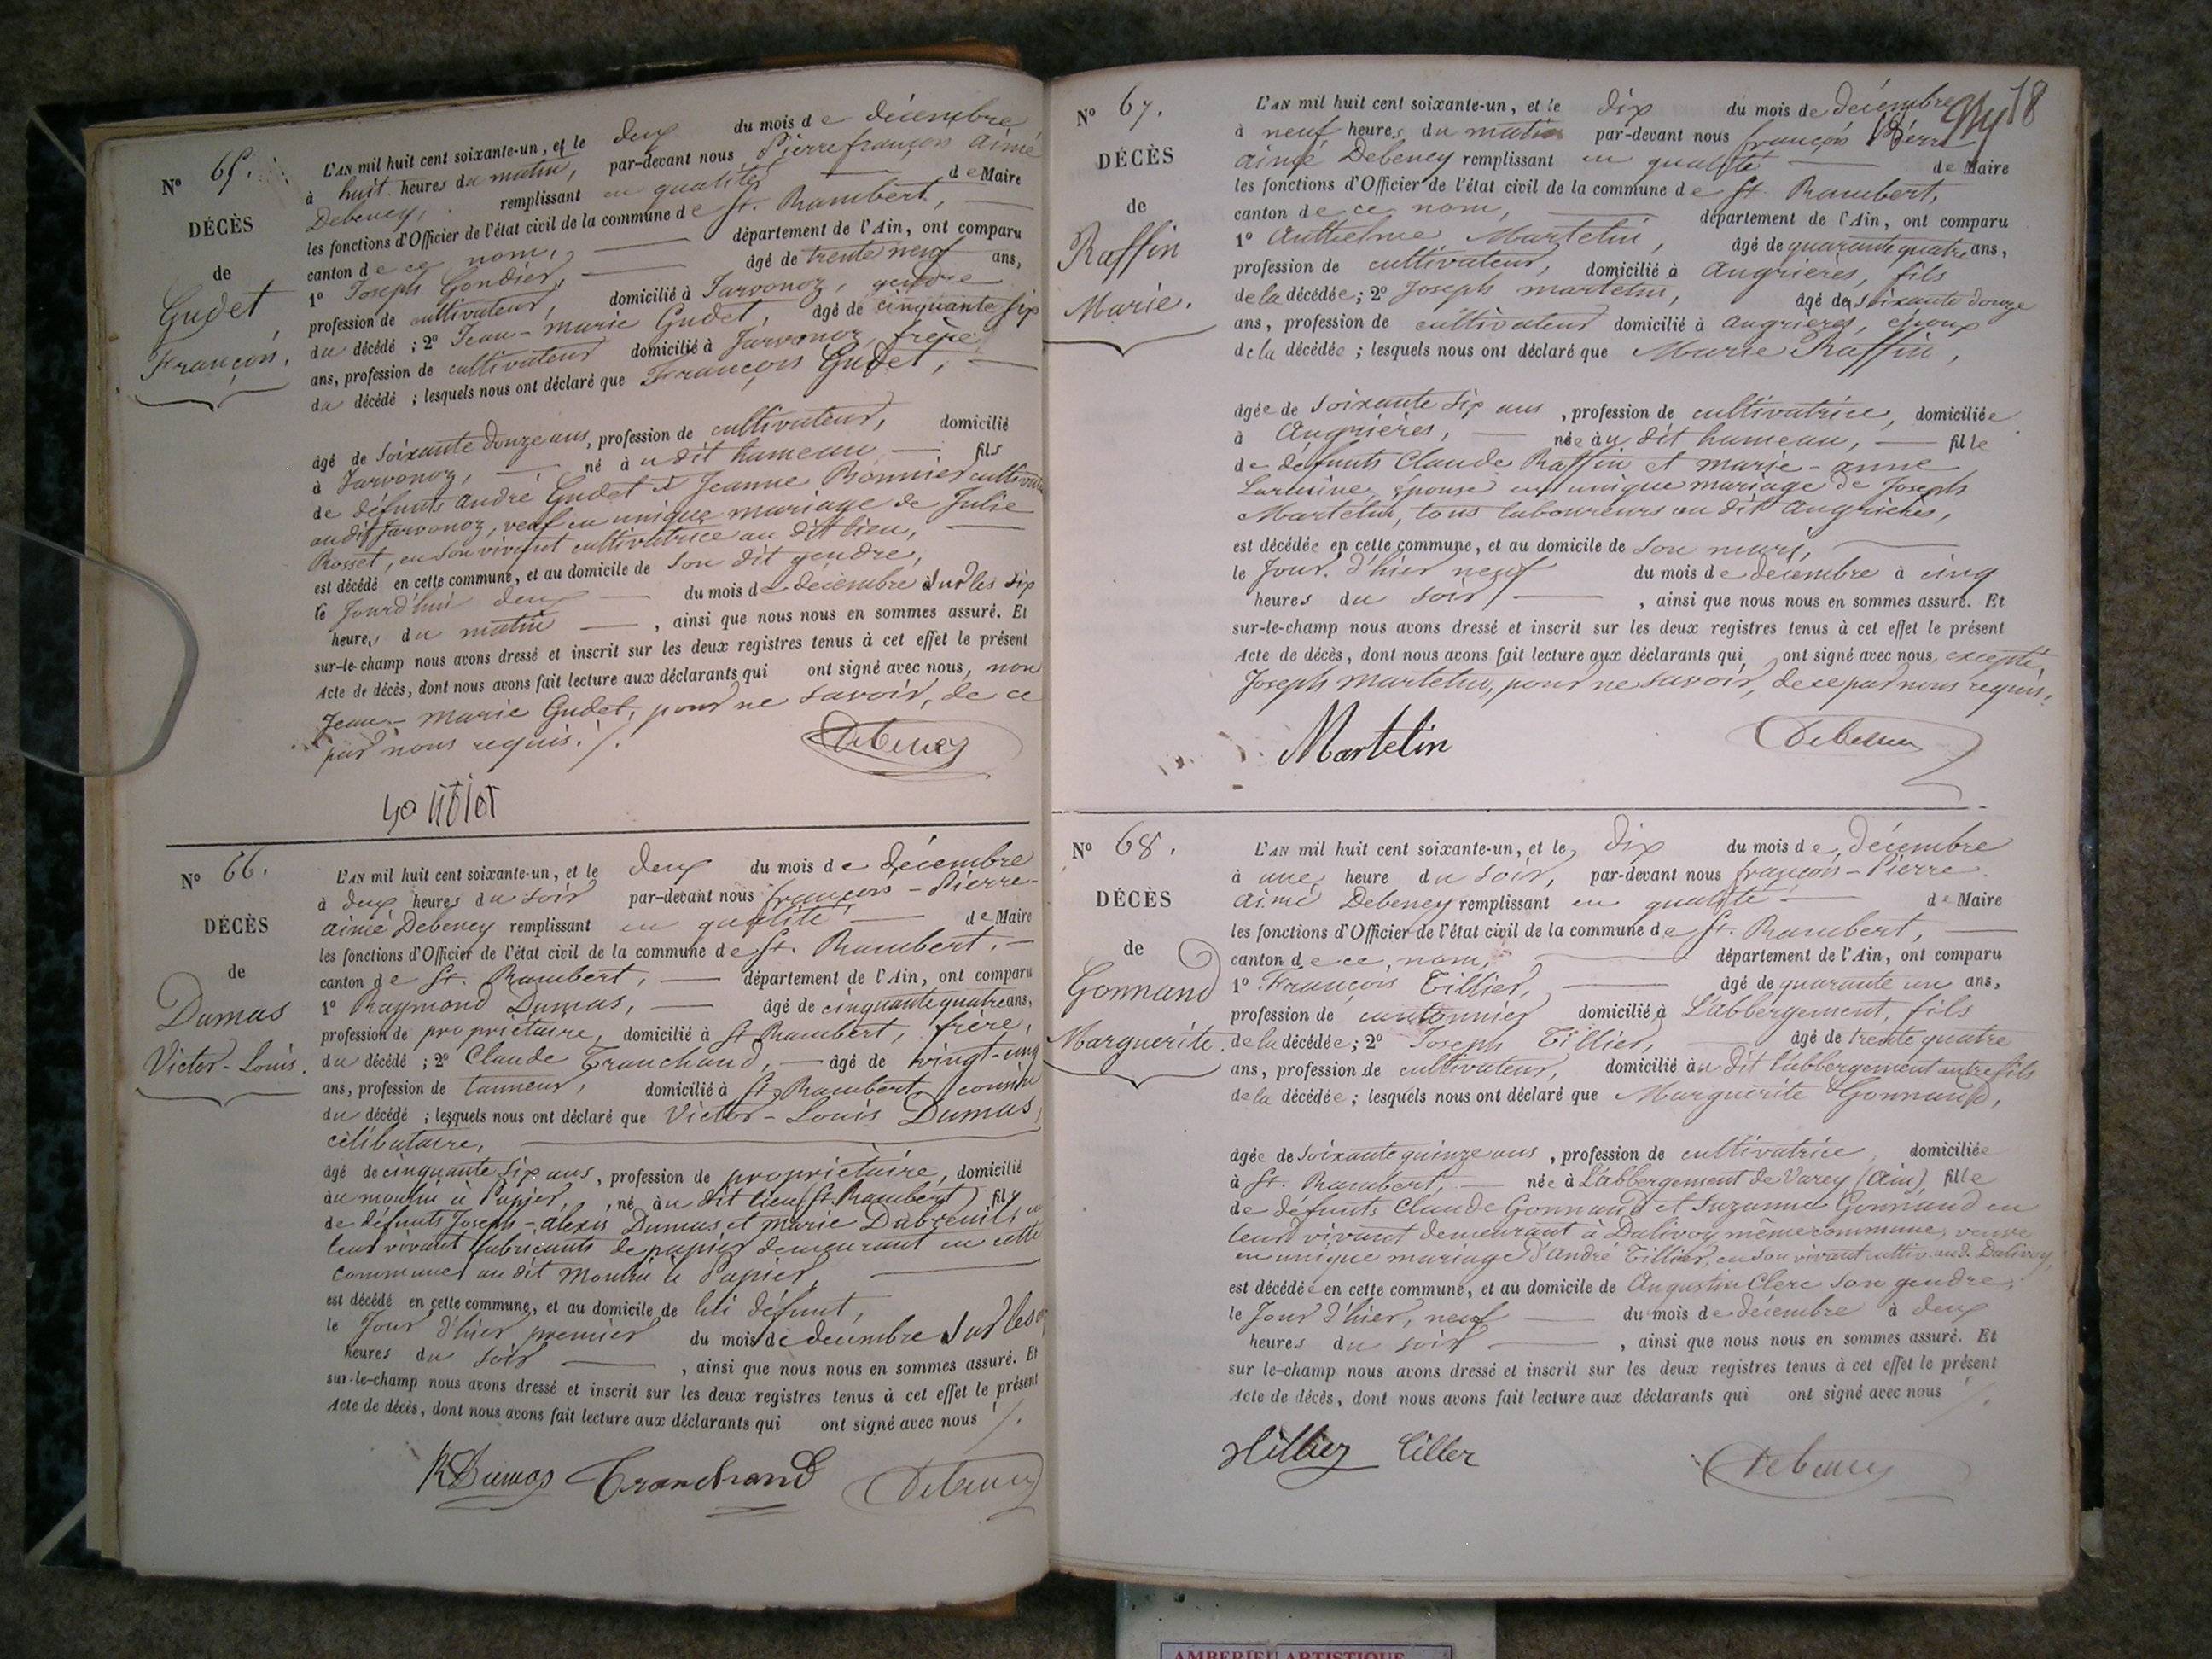 N° 65.
DÉCÈS
de
Gudet
François.
L'AN mil huit cent soixante-un, et le deux du mois de décembre
à huit heures du matin, par-devant nous Pierre françois Aimé
Debeney, remplissant en qualité de Maire
les fonctions d'Officier de l'état civil de la commune de St. Rambert,
canton de ce nom, département de l'Ain, ont comparu
1° Joseph Gondier, âgé de trente neuf ans,
profession de cultivateur, domicilié à Javornoz, gendre
du décédé ; 2° Jean-marie Gudet, âgé de cinquante six
ans, profession de cultivateur domicilié à Javornoz frère
du décédé ; lesquels nous ont déclaré que François Gudet,
âgé de soixante douze ans, profession de cultivateur, domicilié
à Javornoz, né au dit hameau fils
de défunts André Gudet et Jeanne Bonnier
au dit Javornoz, veuf en unique mariage de Julie
Rosset, en son vivant cultivatrice au dit lieu,
est décédé en cette commune, et au domicile de son dit gendre,
le Jourd'hui deux du mois de décembre à sur les six
heures du matin , ainsi que nous nous en sommes assuré. Et
sur-le-champ nous avons dressé et inscrit sur les deux registres tenus à cet effet le présent
Acte de décès, dont nous avons fait lecture aux déclarants qui ont signé avec nous, non
Jean-marie Gudet, pour ne savoir, de ce
par nous requis ./.
Debeney
N° 66.
DÉCÈS
de
Dumas
Victor-Louis.
L'AN mil huit cent soixante-un, et le deux du mois de décembre
à deux heures du soir par-devant nous françois-Pierre-
aimé Debeney remplissant en qualité de Maire
les fonctions d'Officier de l'état civil de la commune de St. Rambert,
canton de St. Rambert, département de l'Ain, ont comparu
1° Raymond Dumas, âgé de cinquante quatre ans,
profession de propriétaire, domicilié à St Rambert, frère,
du décédé ; 2° Claude Tranchand, âgé de vingt-cinq
ans, profession de tanneur, domicilié à St Rambert, cousin
du décédé ; lesquels nous ont déclaré que Victor-Louis Dumas,
célibataire,
âgé de cinquante six ans, profession de propriétaire, domicilié
au moulin à Papier, né au dit lieu (St. Rambert) fils
de défunts Joseph-alexis Dumas et marie Dubreuil, en
leur vivant fabricants de papier demeurant en cette
commune au dit Moulin à Papier,
est décédé en cette commune, et au domicile de lui défunt,
le Jour d'hier premier du mois de décembre sur les
heures du soir , ainsi que nous nous en sommes assuré. Et
sur-le-champ nous avons dressé et inscrit sur les deux registres tenus à cet effet le présent
Acte de décès, dont nous avons fait lecture aux déclarants qui ont signé avec nous ./.
RDumas Tranchand Debeney
18
N° 67.
DÉCÈS
de
Raffin
Marie.
L'AN mil huit cent soixante-un, et le dix du mois de décembre
à neuf heures du matin par-devant nous françois Pierre
aimé Debeney remplissant en qualité de Maire
les fonctions d'Officier de l'état civil de la commune de St. Rambert,
canton de ce nom, département de l'Ain, ont comparu
1° Anthelme Martelin, âgé de quarante quatre ans,
profession de cultivateur, domicilié à Angrières, fils
de la décédée ; 2° Joseph martelin, âgé de soixante douze
ans, profession de cultivateur domicilié à angrières, époux
de la décédée ; lesquels nous ont déclaré que Marie Raffin,
âgée de soixante six ans , profession de cultivatrice, domiciliée
à Angrières, née au dit hameau, fille
de défunts Claude Raffin et marie-anne
épouse en unique mariage de Joseph
Martelin, tous laboureurs au dit Angrières,
est décédée en cette commune, et au domicile de son mari,
le Jour d'hier neuf du mois de décembre à cinq
heures du soir , ainsi que nous nous en sommes assuré. Et
sur-le-champ nous avons dressé et inscrit sur les deux registres tenus à cet effet le présent
Acte de décès, dont nous avons fait lecture aux déclarants qui ont signé avec nous, excepté
Joseph Martelin, pour ne savoir, de ce par nous requis.
Martelin Debeney
N° 68.
DÉCÈS
de
Gonnand
Marguerite.
L'AN mil huit cent soixante-un, et le dix du mois de décembre
à une heure du soir, par-devant nous françois-Pierre
aimé Debeney remplissant en qualité de Maire
les fonctions d'Officier de l'état civil de la commune de St. Rambert,
canton de ce nom, département de l'Ain, ont comparu
1° François Tillier, âgé de quarante un ans,
profession de cantonnier domicilié à L'abbergement, fils
de la décédée ; 2° Joseph Tillier, âgé de trente quatre
ans, profession de cultivateur, domicilié au dit l'abbergement autre fils
de la décédée ; lesquels nous ont déclaré que Marguerite Gonnand,
âgée de soixante quinze ans , profession de cultivatrice domiciliée
à St. Rambert, née à L'abbergement de Varey (Ain), fille
de défunts Claude Gonnand et Suzanne Gonnand en
leur vivant demeurant à Dalivoy même commune, veuve
en unique mariage d'André Tillier, en son vivant cultiv. aud. Dalivoy,
est décédée en cette commune, et au domicile de Augustin Clerc son gendre,
le Jour d'hier, neuf du mois de décembre à deux
heures du soir , ainsi que nous nous en sommes assuré. Et
sur le-champ nous avons dressé et inscrit sur les deux registres tenus à cet effet le présent
Acte de décès, dont nous avons fait lecture aux déclarants qui ont signé avec nous ./.
Tillier Tiller Debeney
AMBERIEU ARTISTIQUE